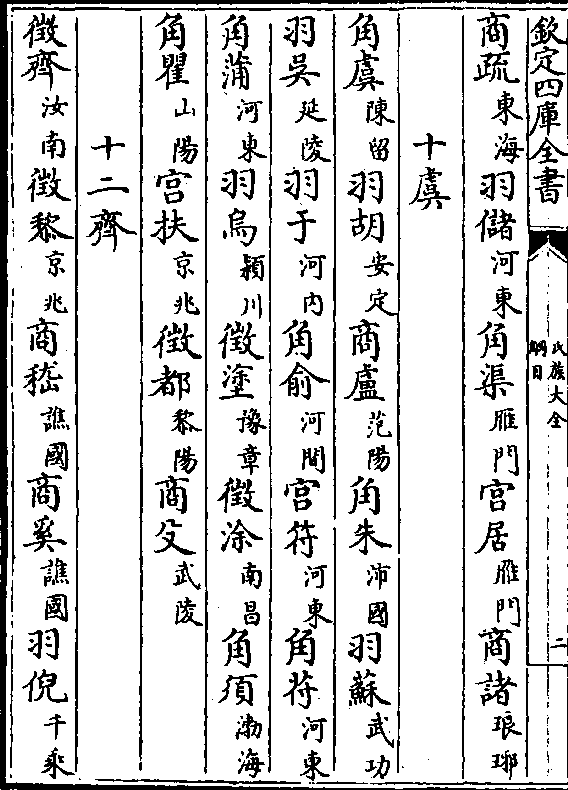 欽定四庫全書
氏族大全
綱目
二
商疏東海羽儲河東角渠雁門宫居雁門商諸琅琊
十虞
角虞陳留羽胡安定商盧范陽角朱沛國羽蘇武功
羽吳延陵羽于河内角俞河間宫符河東角苻河東
角蒲河東羽烏潁川徵塗豫章徵涂南昌角須渤海
角瞿山陽宫扶京兆徵都黎陽商殳武陵
十二齊
徵齊汝南徵黎京兆商嵇譙國商奚譙國羽倪千乘